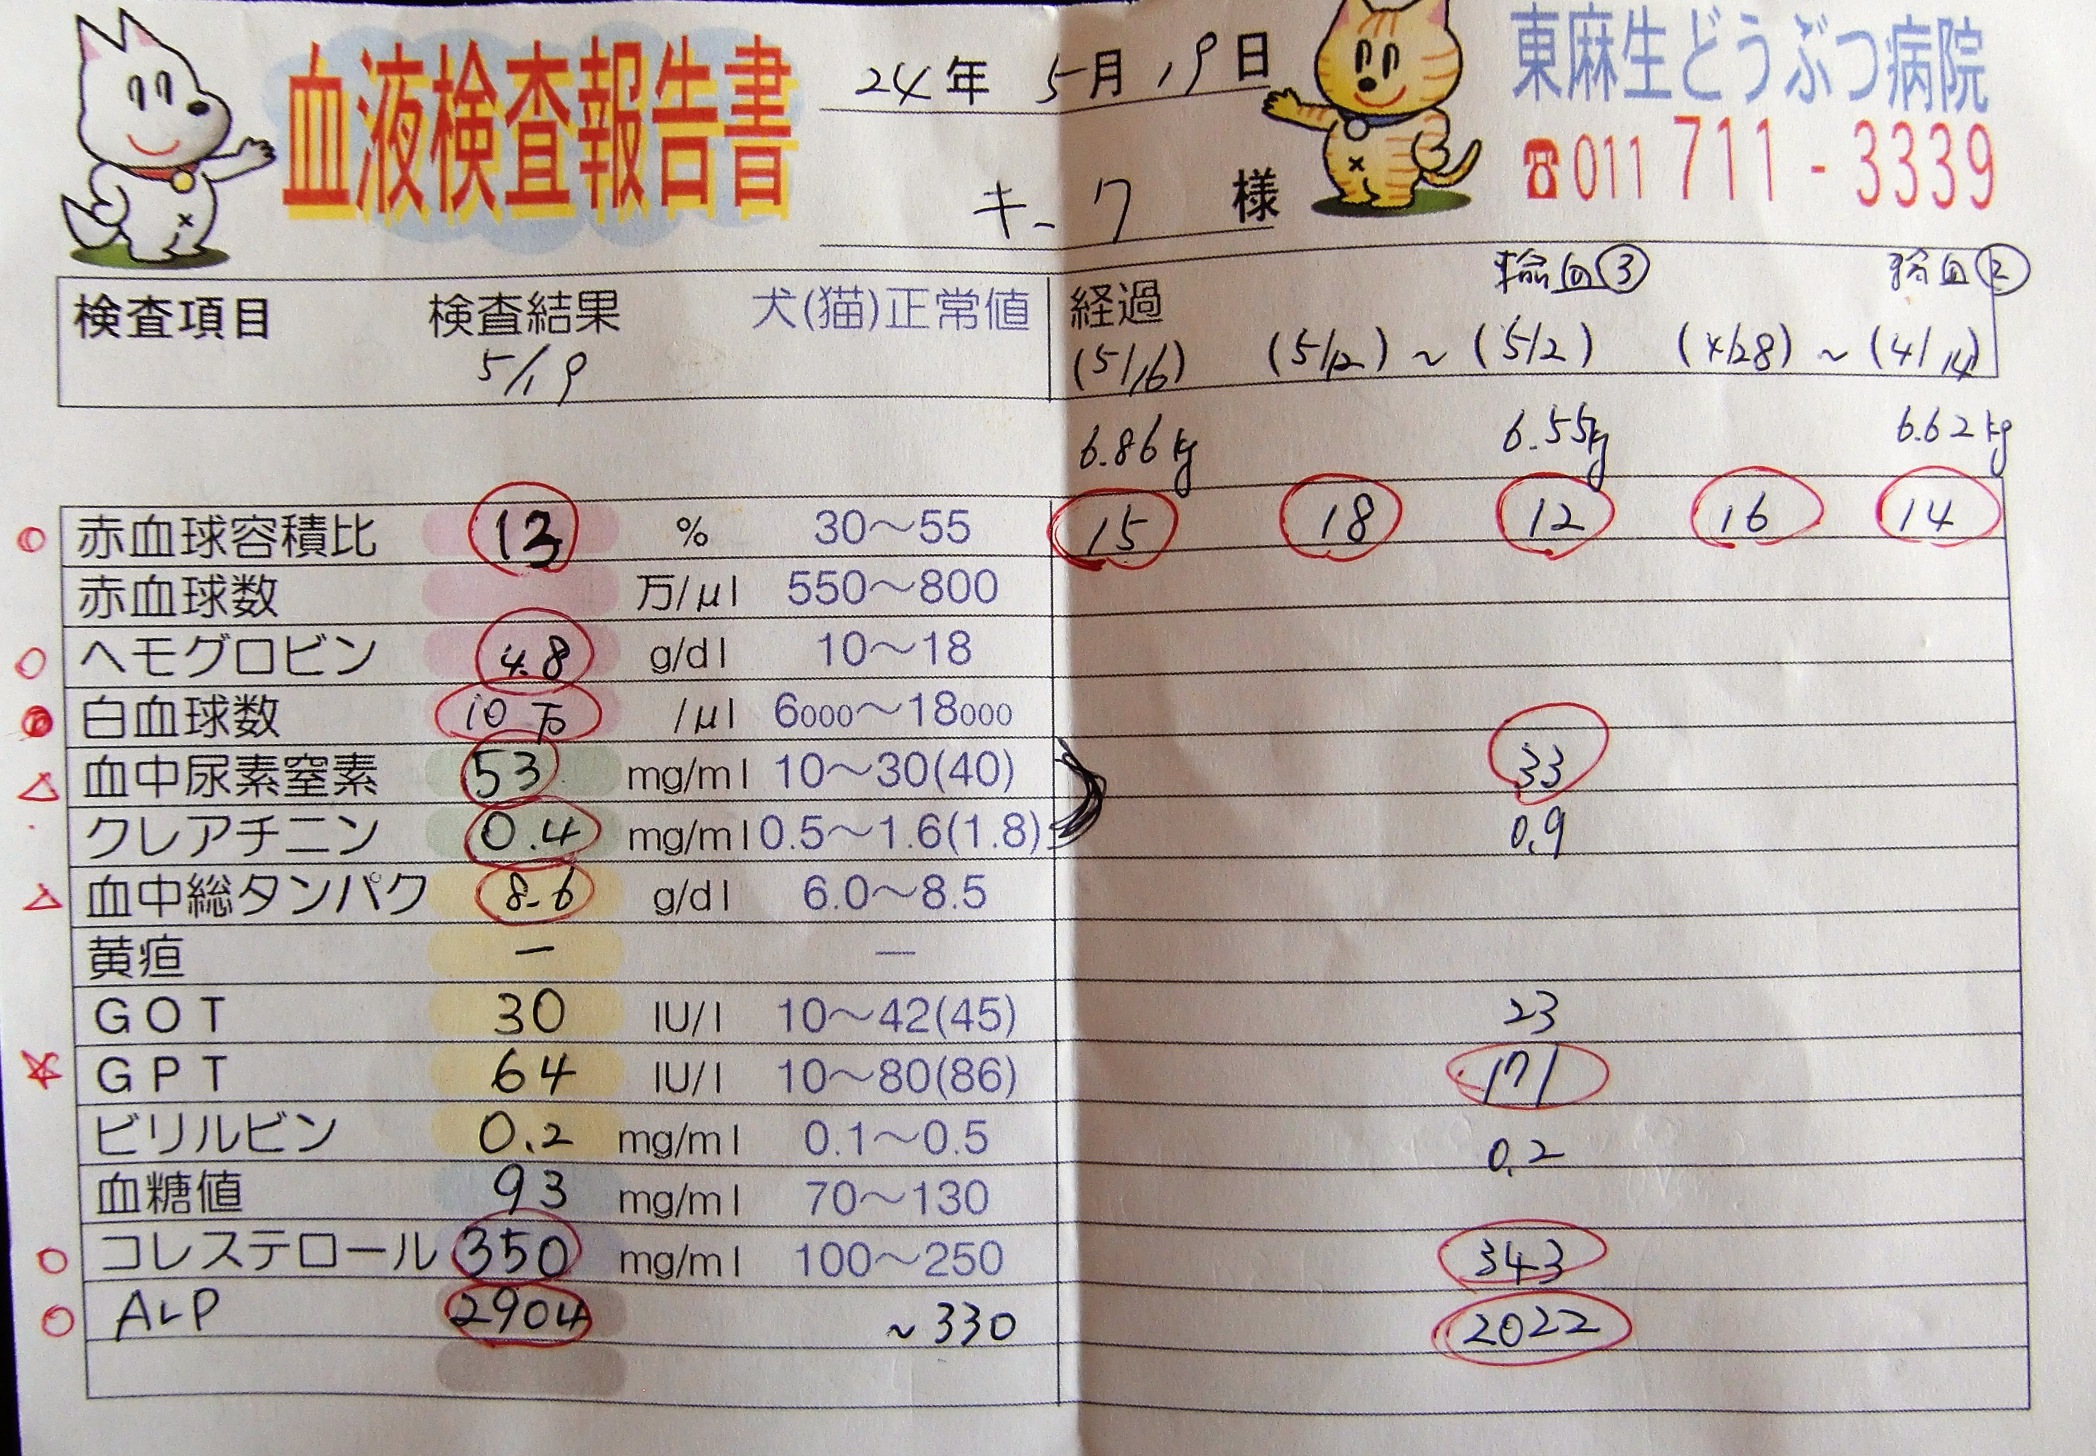 血液検査報告書
24年 5月 19日
キーク 様
東麻生どうぶつ病院
☎011 711-3339
輸血③ 輸血②
検査項目 検査結果 犬(猫)正常値 経過
5/19 (5/16) (5/12) ~ (5/2) (4/28) ~ (4/14)
6.86kg 6.55kg 6.62kg
赤血球容積比 13 % 30〜55 15 18 12 16 14
赤血球数 万/μl 550〜800
ヘモグロビン 4.8 g/dl 10〜18
白血球数 10万 /μl 6000〜18000
血中尿素窒素 53 mg/ml 10〜30(40) 33
クレアチニン 0.4 mg/ml 0.5〜1.6(1.8) 0.9
血中総タンパク 8.6 g/dl 6.0〜8.5
黄疸 ー ー
GOT 30 IU/l 10〜42(45) 23
GPT 64 IU/l 10〜80(86) 171
ビリルビン 0.2 mg/ml 0.1〜0.5 0.2
血糖値 93 mg/ml 70〜130
コレステロール 350 mg/ml 100〜250 343
ALP 2904 ~330 2022